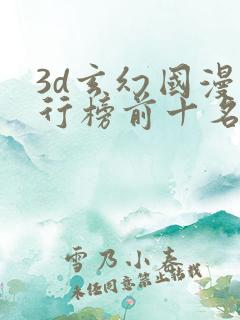 3d玄幻國漫
行榜前十名
雪乃小春
未经同意禁止转载